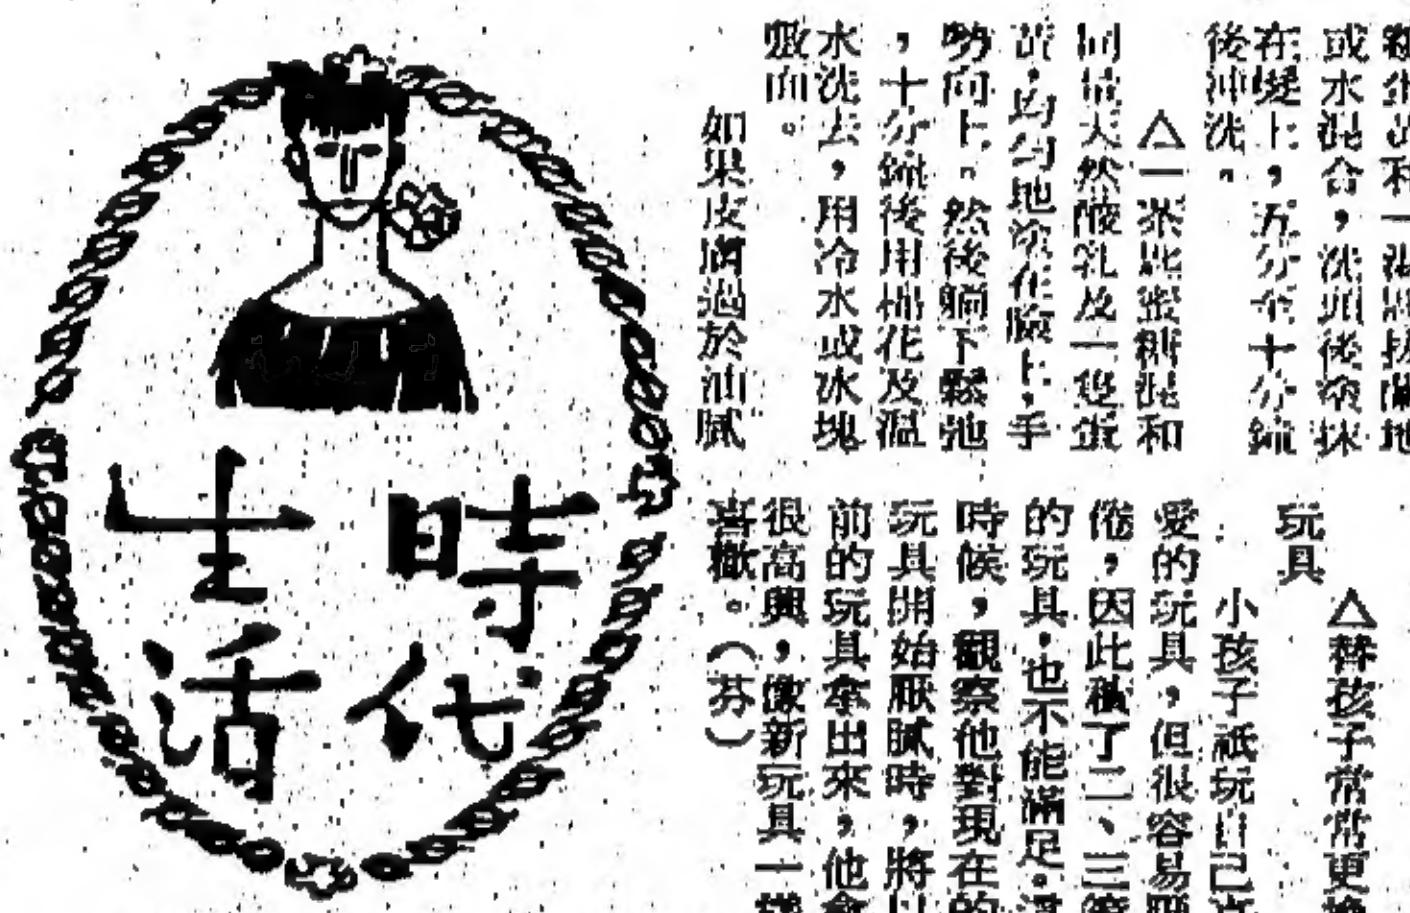 或水混合，洗頭後塗抹
在髮上，五分至十分鐘
後沖洗。
△一茶匙蜜糖混和
同量天然酸乳及一隻蛋
黃，均勻地塗在臉上，手
勢向上。然後躺下鬆弛
，十分鐘後用棉花及溫
水洗去，用冷水或冰塊
敷面。
如果皮膚過於油膩
△替孩子常常更換
玩具
小孩子祇玩自己
愛的玩具，但很容易
倦，因此積了二、三
的玩具，也不能滿足。
時候，觀察他對現在的
玩具開始厭膩時，將以
前的玩具拿出來，他會
很高興，像新玩具一樣
喜歡。（芬）
時代
生活